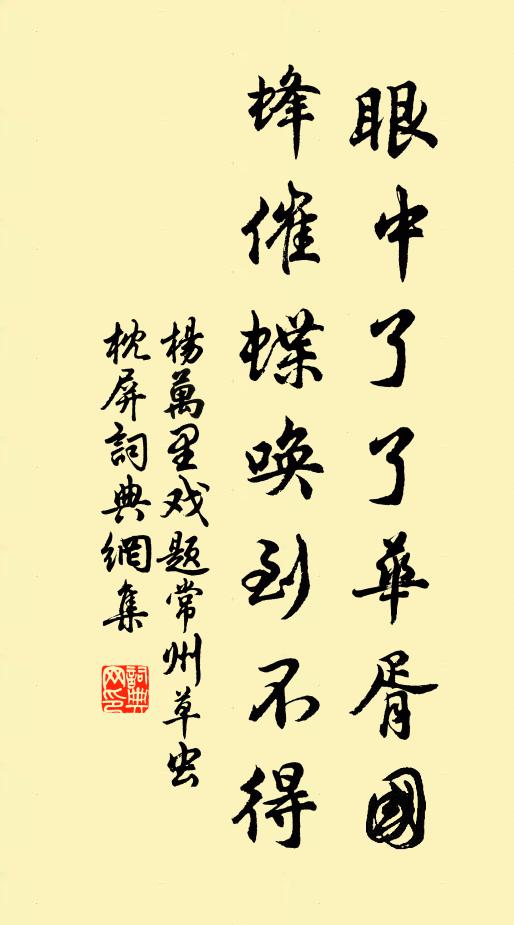 眼中了了華胥國
蜂催蝶喚到不得
楊萬里戏題常州草虫
枕屏詞典網集
詞典
网印